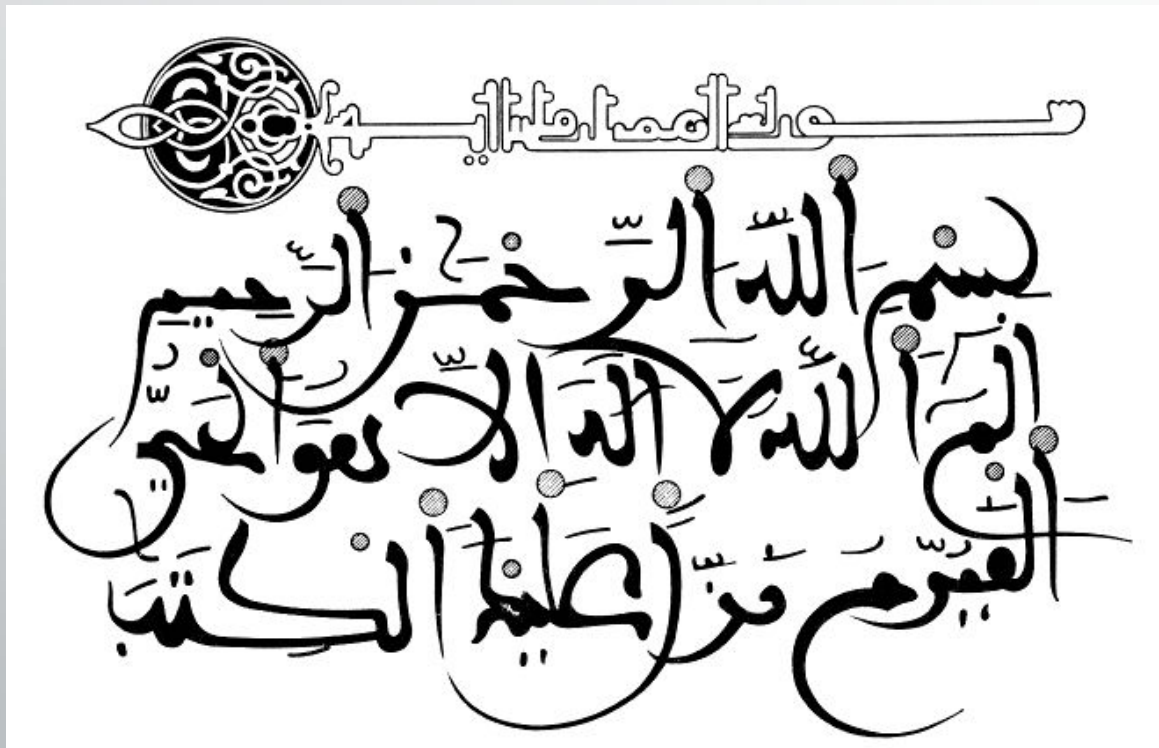 سورة ال عمران
بِسْمِ اللَّهِ الرَّحْمَنِ الرَّحِيمِ
الَمِّ اللَّهُ لَا إِلَهَ إِلَّا هُوَ الْحَيُّ
الْقَيُّومُ نَزَّلَ عَلَيْكَ الْكِتَبَ